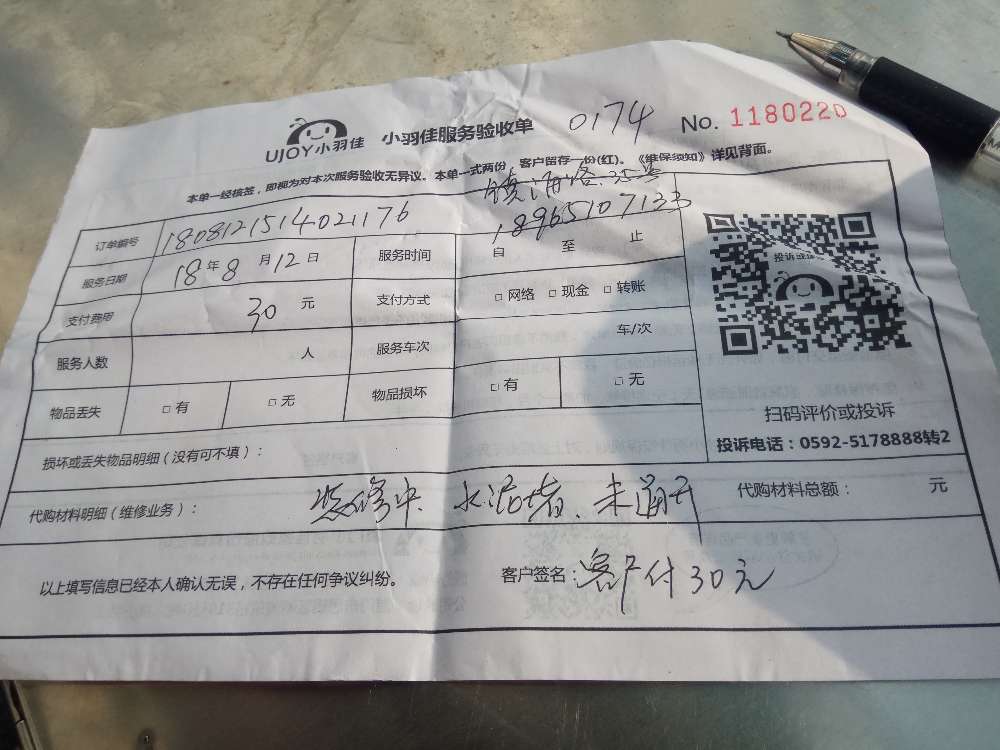 UJOY小羽佳 小羽佳服务验收单 0174 No. 1180220
本单一经核签，即视为对本次服务验收无异议。本单一式两份，客户留存一份(红)。《维保须知》详见背面。
镇海路35号
18965107133
订单编号 1808121514021176
服务日期 18年8月12日 服务时间 自 至 止
支付费用 30 元 支付方式 □ 网络 □ 现金 □ 转账
服务人数 人 服务车次 车/次
物品丢失 □ 有 □ 无 物品损坏 □ 有 □ 无
扫码评价或投诉
投诉电话：0592-5178888转2
损坏或丢失物品明细（没有可不填）：
代购材料明细（维修业务）： 装修中 水泥堵、未通开 代购材料总额： 元
以上填写信息已经本人确认无误，不存在任何争议纠纷。 客户签名：客户付30元